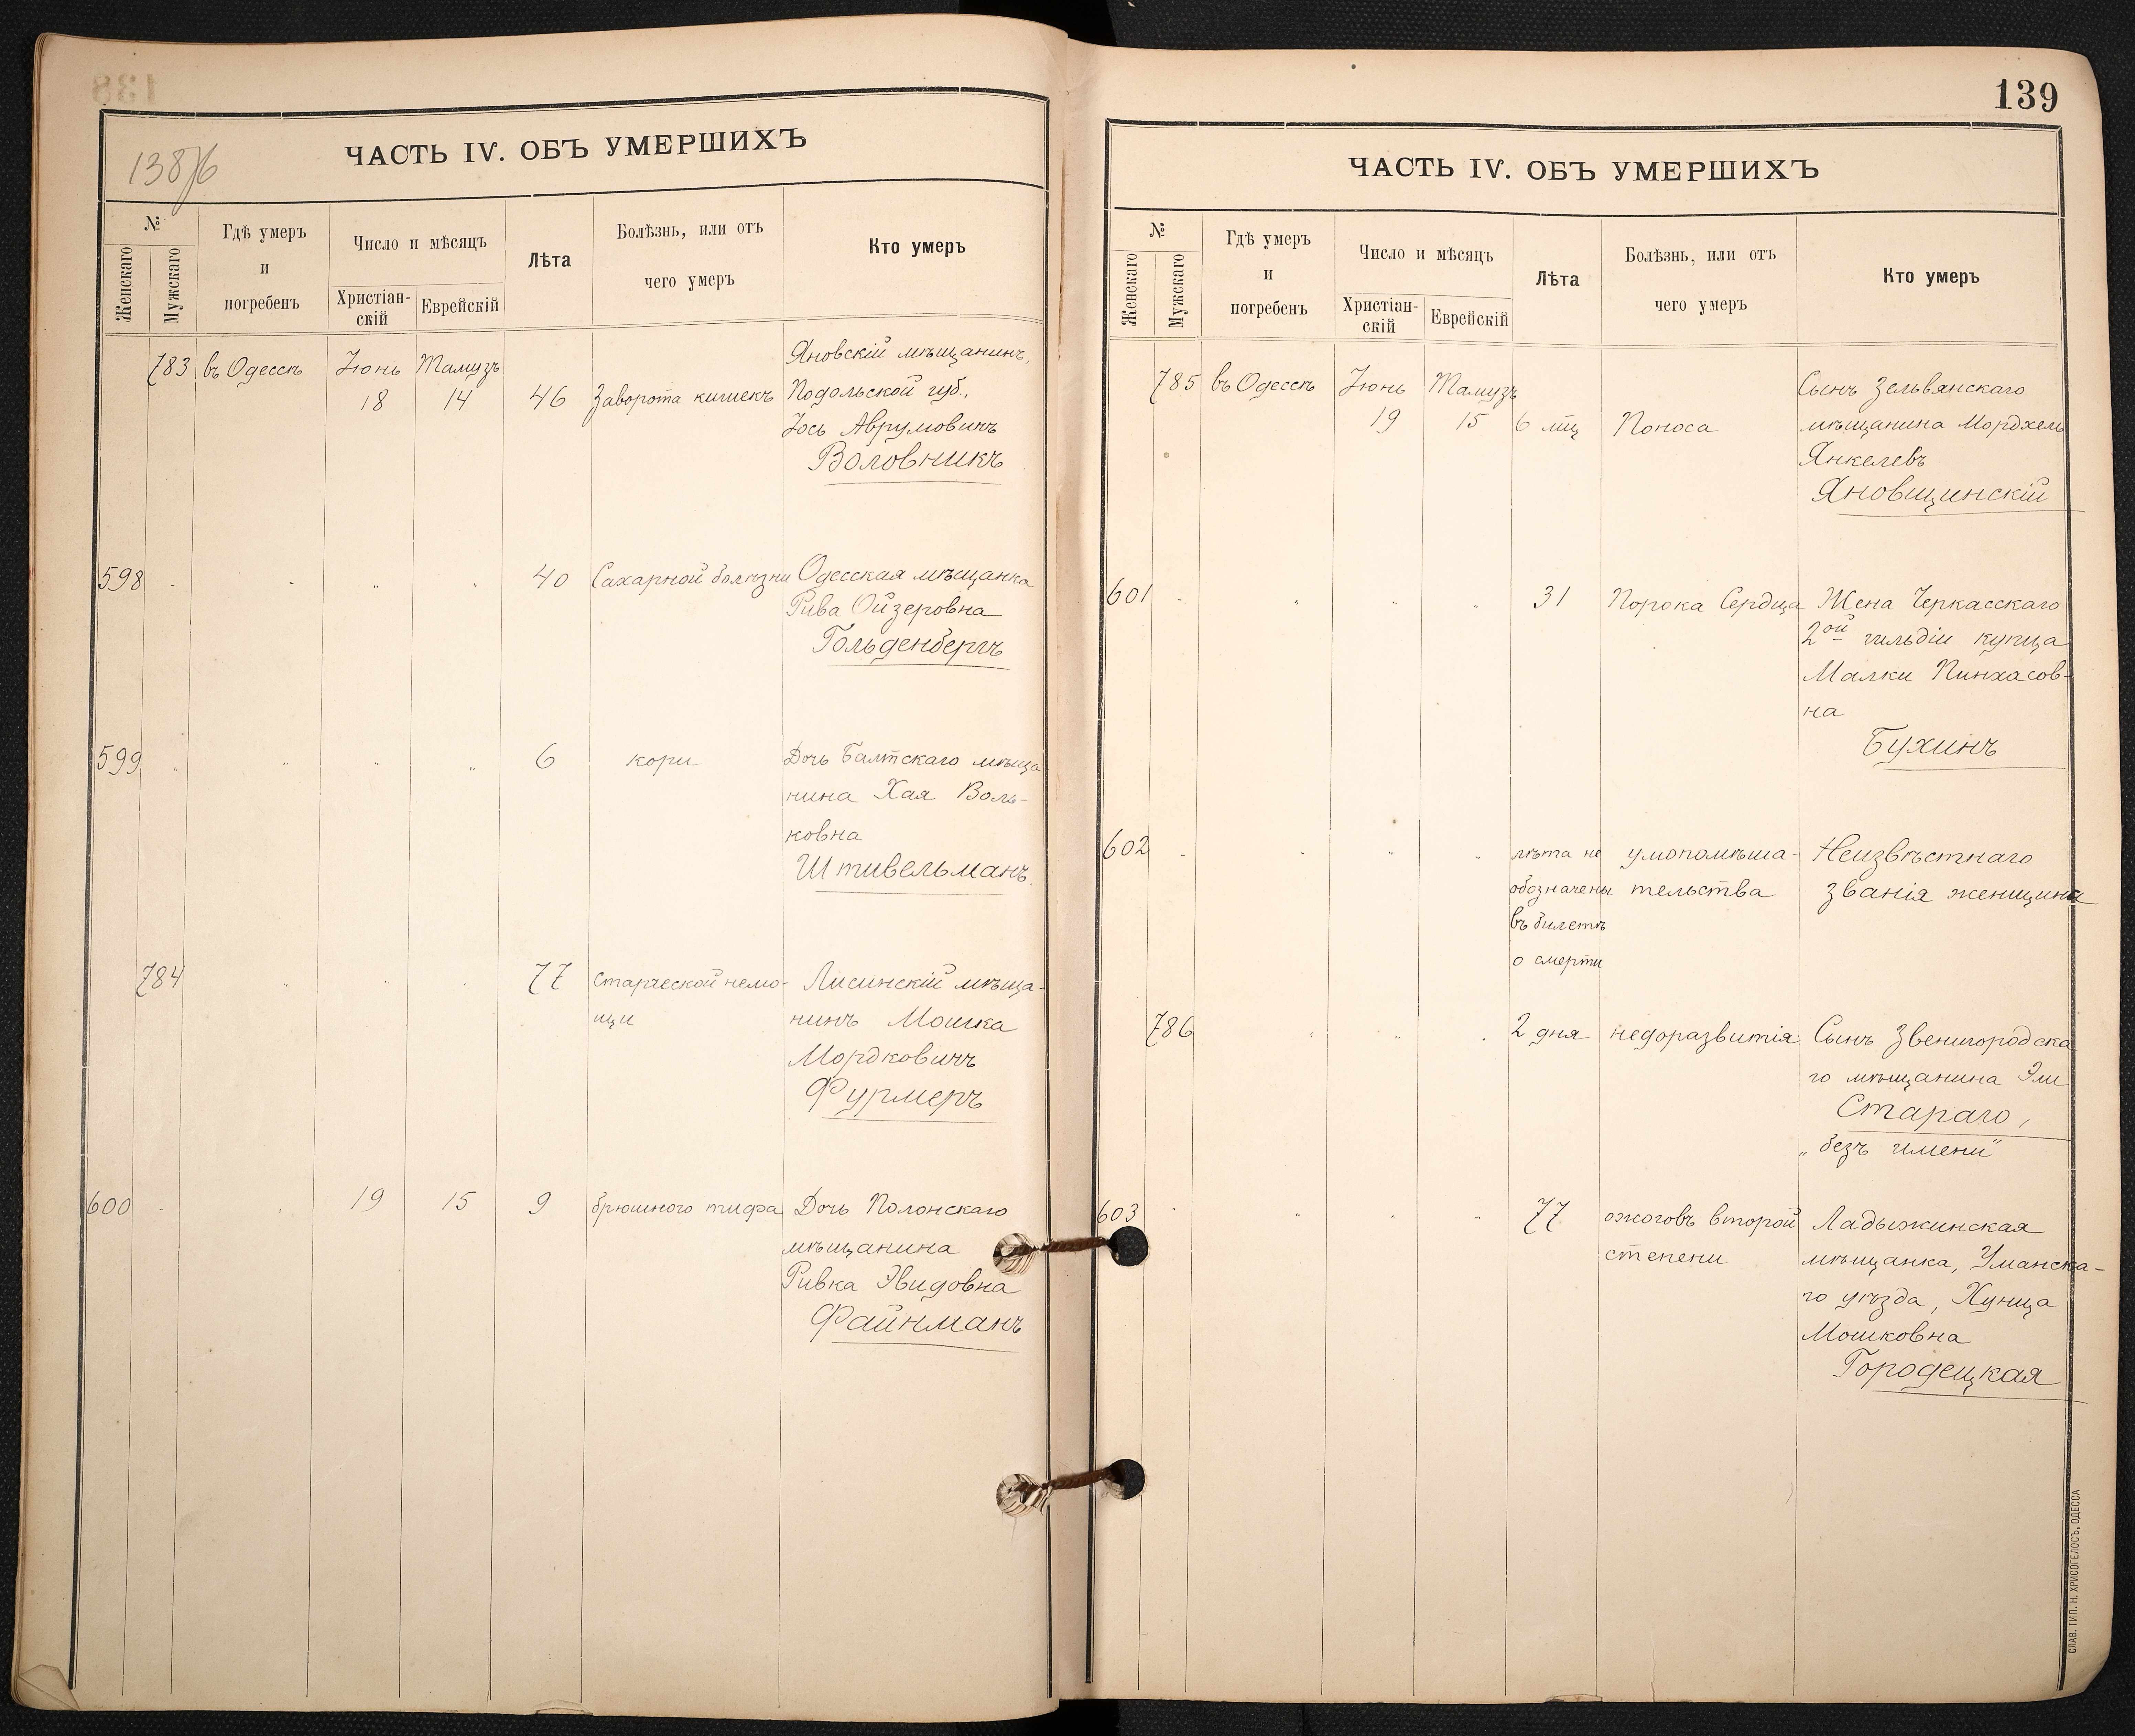 138/б
ЧАСТЬ IV. ОБЪ УМЕРШИХЪ
№
Женскаго
Мужскаго
Гдѣ умеръ
и
погребенъ
Число и мѣсяцъ
Христіан-
скій
Еврейскій
Лѣта
Болѣзнь, или отъ
чего умеръ
Кто умеръ
783 въ Одессѣ Іюнь Тамузъ Яновскій мѣщанинъ,
18 14 46 Заворота кишекъ Подольской губ.,
Іось Аврумовичъ
Воловникъ
598 40 Сахарной болѣзни Одесская мѣщанка
Рива Ойзеровна
Гольденбергъ
599 6 кори Дочь Балтскаго мѣща
нина Хая Воль-
ковна
Штивельманъ.
784 77 Старческой немо- Лисинскій мѣща-
щи нинъ Мошка
Мордковичъ
Фурмеръ
600 19 15 9 брюшного тифа Дочь Полонскаго
мѣщанина
Ривка Эвидовна
Файнманъ
139
ЧАСТЬ IV. ОБЪ УМЕРШИХЪ
№
Женскаго
Мужскаго
Гдѣ умеръ
и
погребенъ
Число и мѣсяцъ
Христіан-
скій
Еврейскій
Лѣта
Болѣзнь, или отъ
чего умеръ
Кто умеръ
785 въ Одессѣ Іюнь Тамузъ Сынъ Зельвянскаго
19 15 6 мц Поноса мѣщанина Мордхель
Янкелевъ
Яновщинскій
601 31 Порока Сердца Жена Черкасскаго
2ой гильдіи купца
Малки Пинхасов-
на
Бухинъ
602 лѣта не умопомѣша- Неизвѣстнаго
обозначены тельства званія женщина
въ билетѣ
о смерти
786 2 дня недоразвитія Сынъ Звенигородска
го мѣщанина Эли
Стараго,
„безъ имени"
603 77 ожоговъ второй Ладыжинская
степени мѣщанка, Уманска-
го уѣзда, Хунца
Мошковна
Городецкая
СЛАВ. ТИП. Н. ХРИСОГЕЛОСЪ, ОДЕССА